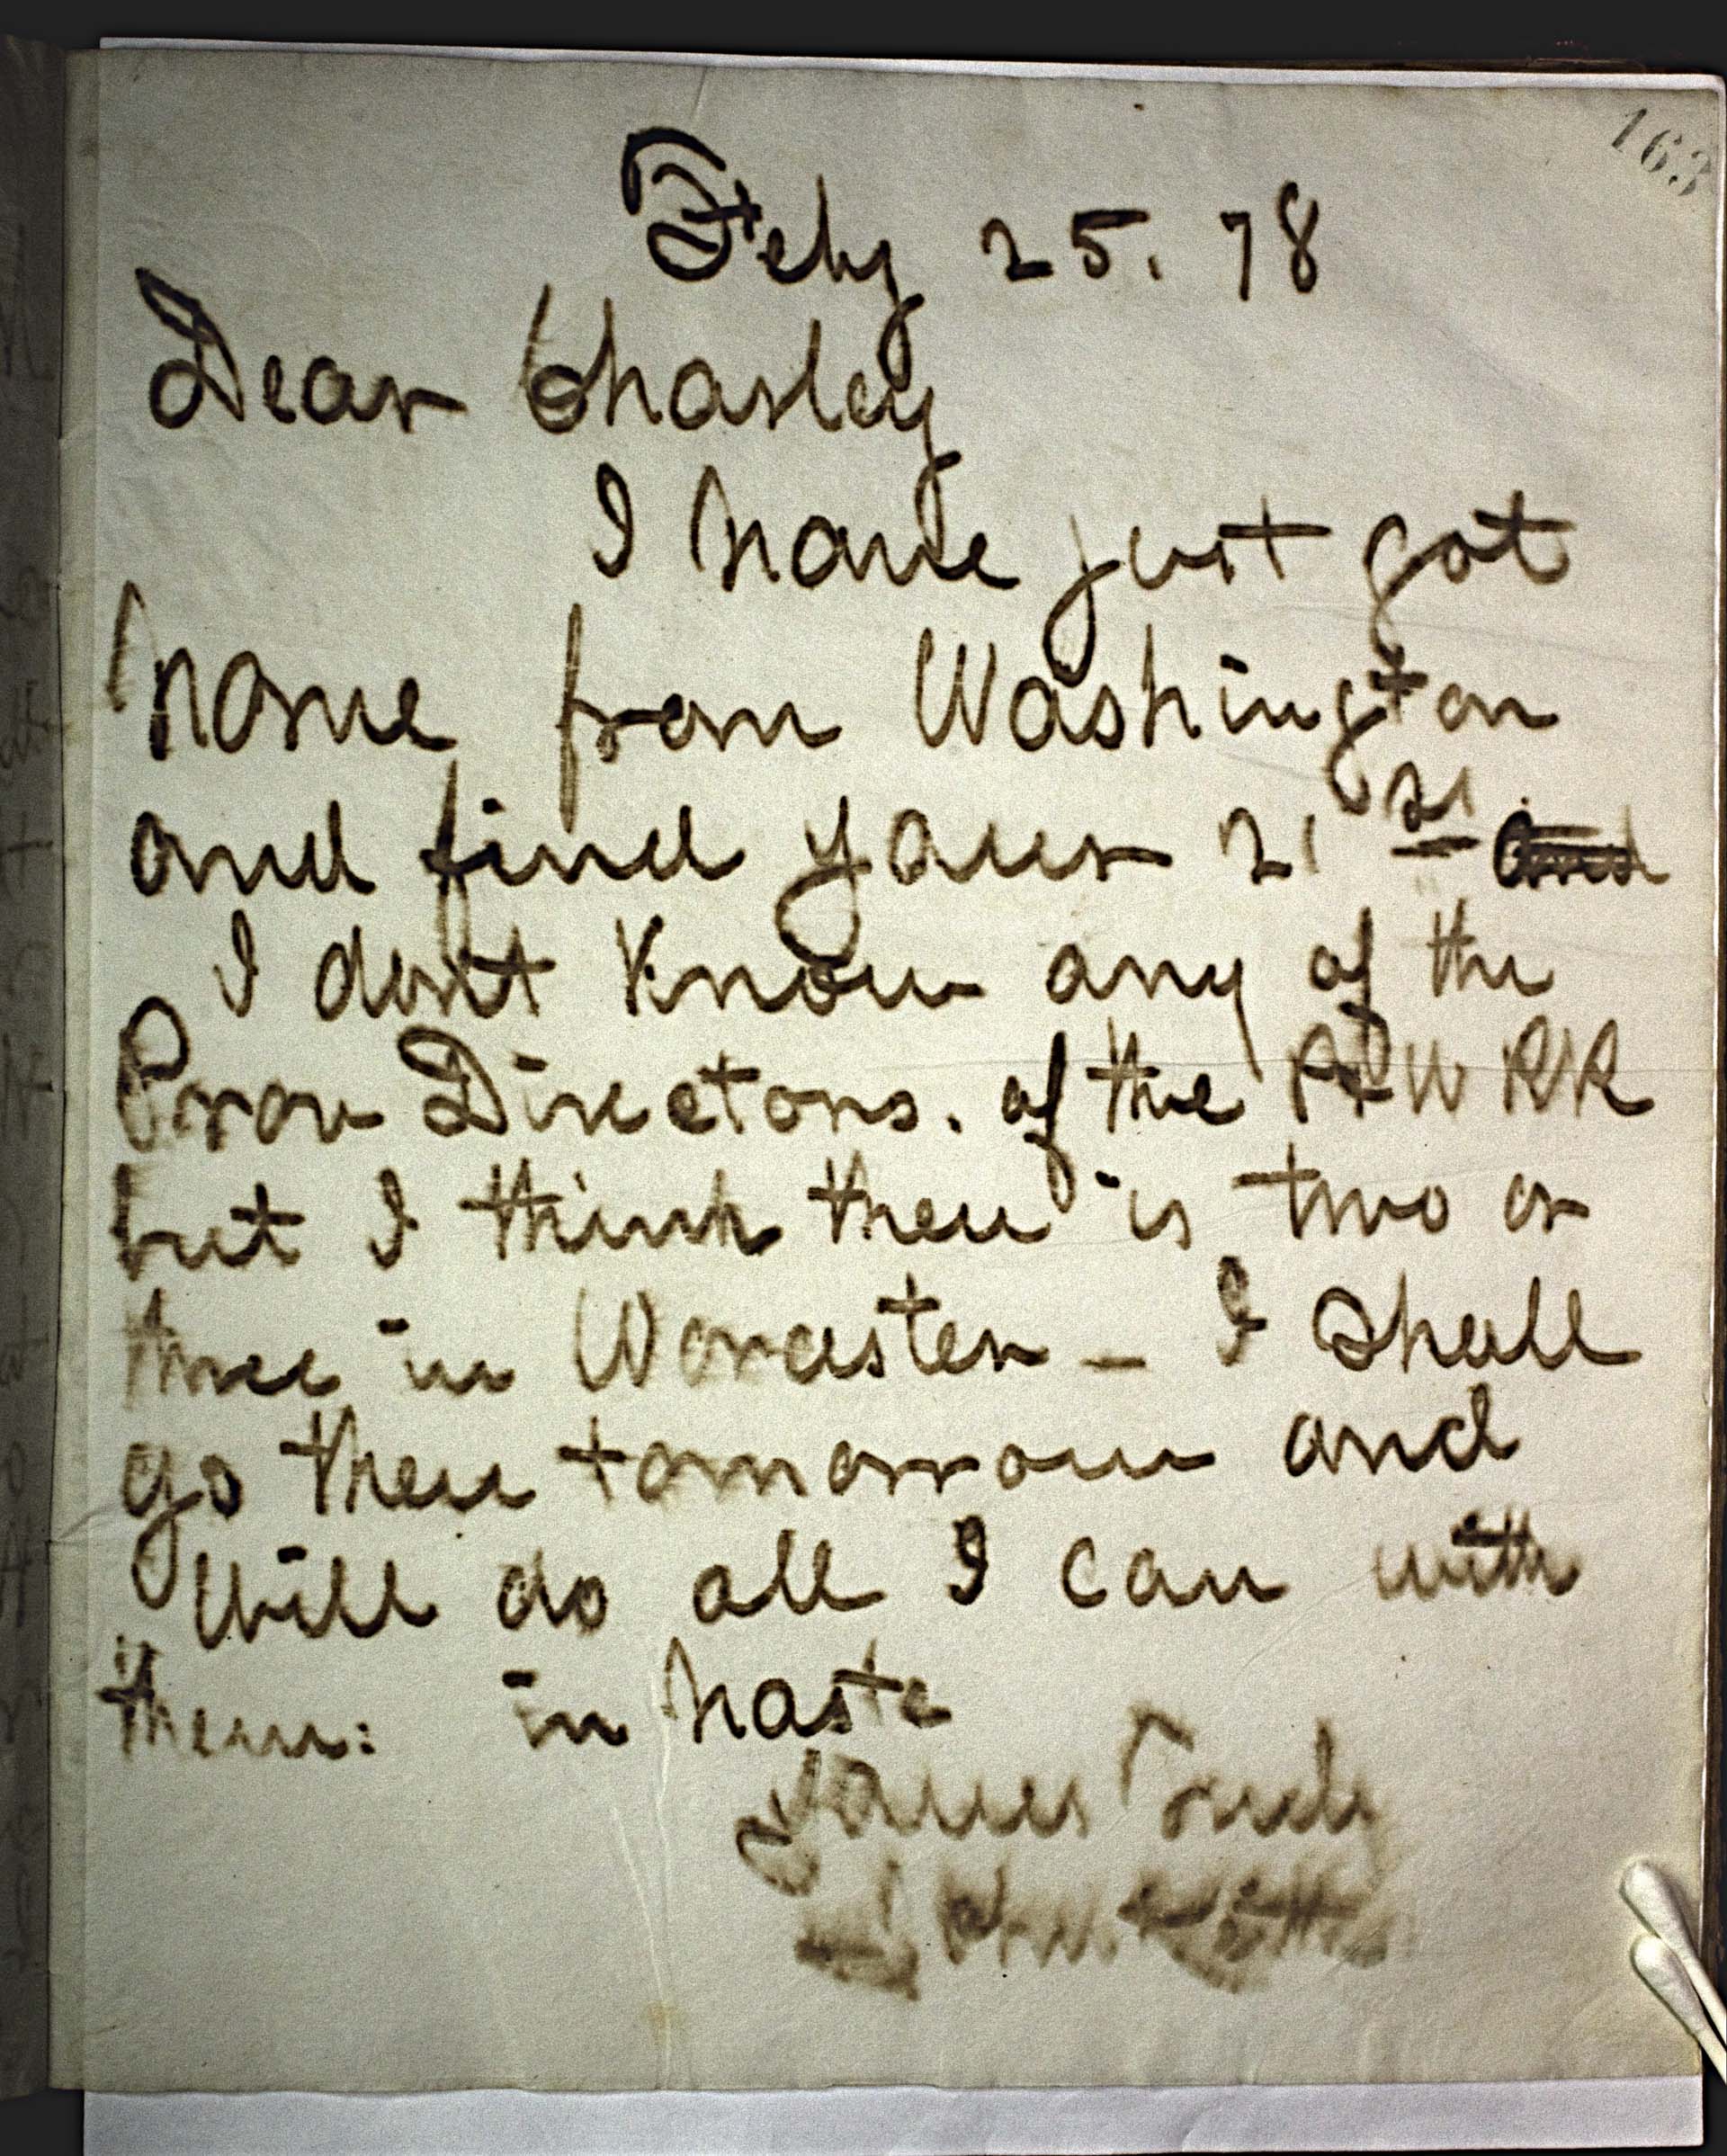 163
Feby 25. 78
Dear Charley
I have just got
home from Washington
and find yours 21st and
I don't know any of the
Prov Directors. of the P&W RR
but I think there is two or
three in Worcester – I shall
go there tomorrow and
will do all I can with
them: in haste
Yours Truly